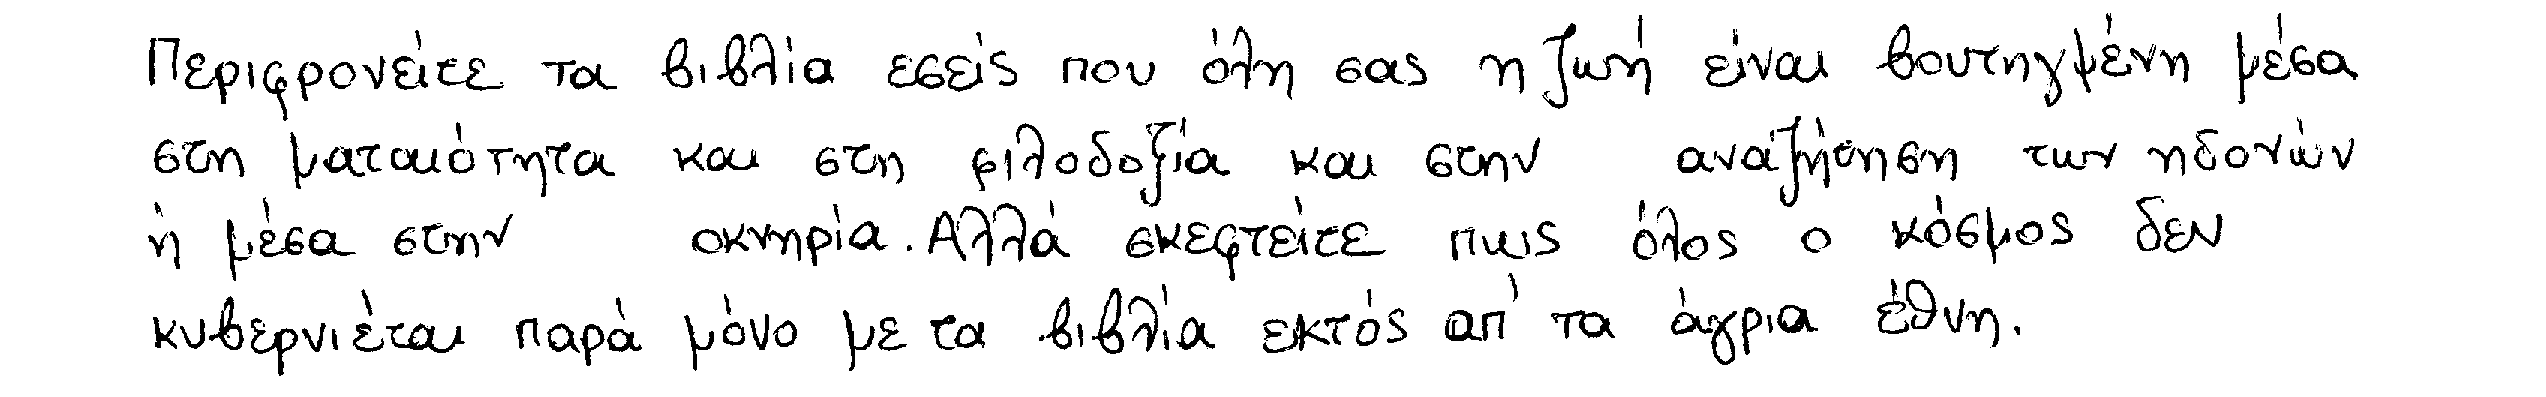 Περιφρονείτε τα βιβλία εσείς που όλη σας η ζωή είναι βουτηγμένη μέσα
στη ματαιότητα και στη φιλοδοξία και στην αναζήτηση των ηδονών
ή μέσα στην οκνηρία. Αλλά σκεφτείτε πως όλος ο κόσμος δεν
κυβερνιέται παρά μόνο με τα βιβλία εκτός απ' τα άγρια έθνη.